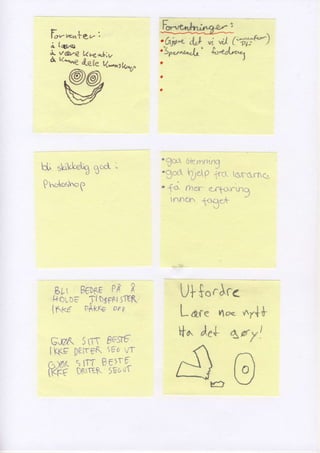 Forventer:
å lære
å være kreativ
å kunne dele kunnskap
Forventninger:
Gjøre det vi vil
Spennende foredrag
bli skikkelig god i
Photoshop
god stemning
god hjelp fra lærerne
få mer erfaring
innen faget
BLI BEDRE PÅ Å
HOLDE TIDSFRISTER
IKKE
GJØR SITT BESTE
IKKE DRITER SEG UT
GJØR SITT BESTE
IKKE DRITER SEG UT
Utfordre
Lære noe nytt
Ha det gøy!